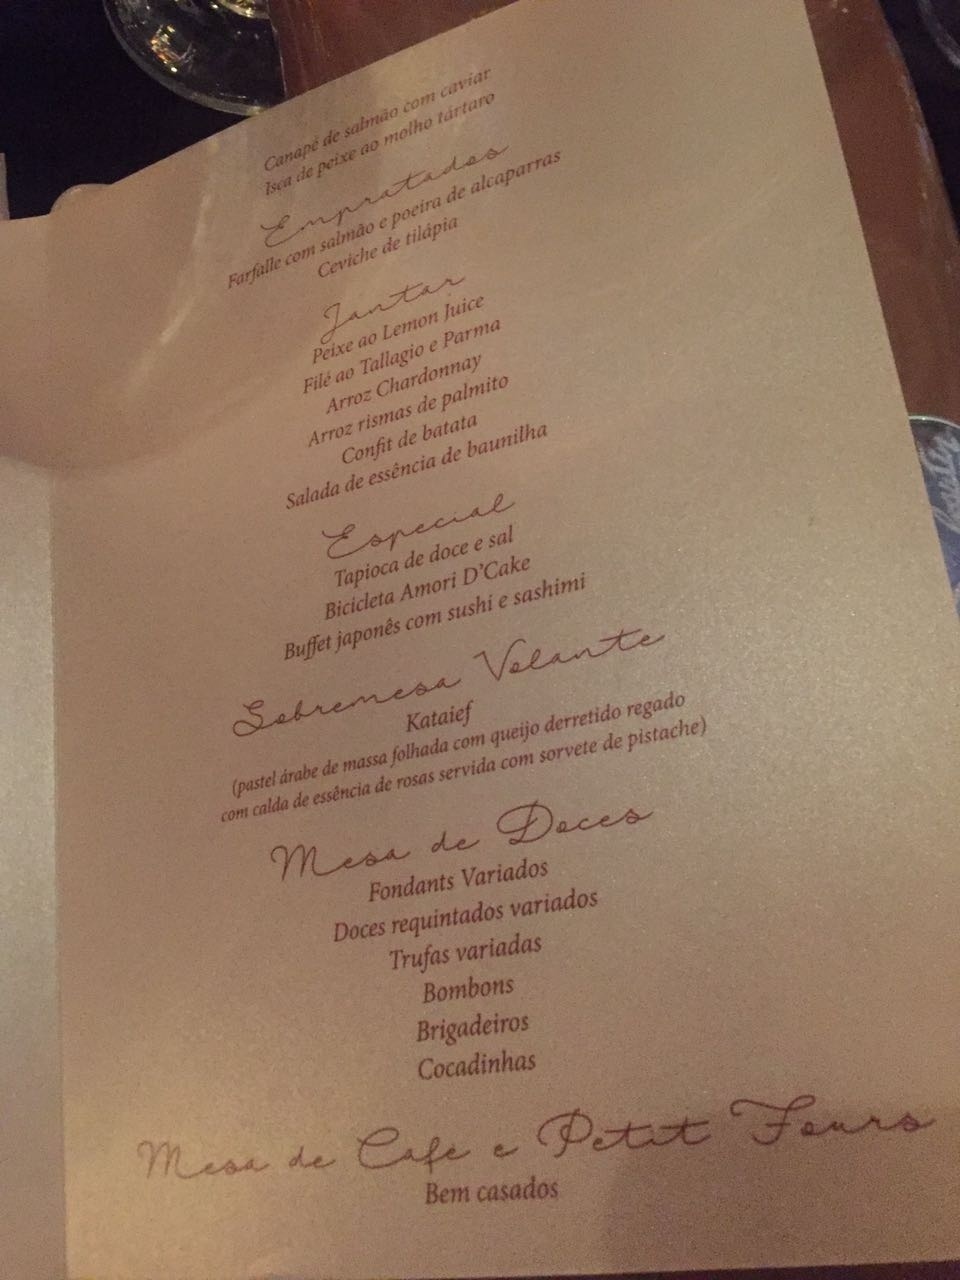 Canapé de salmão com caviar
Isca de peixe ao molho tártaro
Empratados
Farfalle com salmão e poeira de alcaparras
Ceviche de tilápia
Jantar
Peixe ao Lemon Juice
Filé ao Tallagio e Parma
Arroz Chardonnay
Arroz rismas de palmito
Confit de batata
Salada de essência de baunilha
Especial
Tapioca de doce e sal
Bicicleta Amori D'Cake
Buffet japonês com sushi e sashimi
Sobremesa Volante
Kataief
(pastel árabe de massa folhada com queijo derretido regado
com calda de essência de rosas servida com sorvete de pistache)
Mesa de Doces
Fondants Variados
Doces requintados variados
Trufas variadas
Bombons
Brigadeiros
Cocadinhas
Mesa de Café e Petit Fours
Bem casados